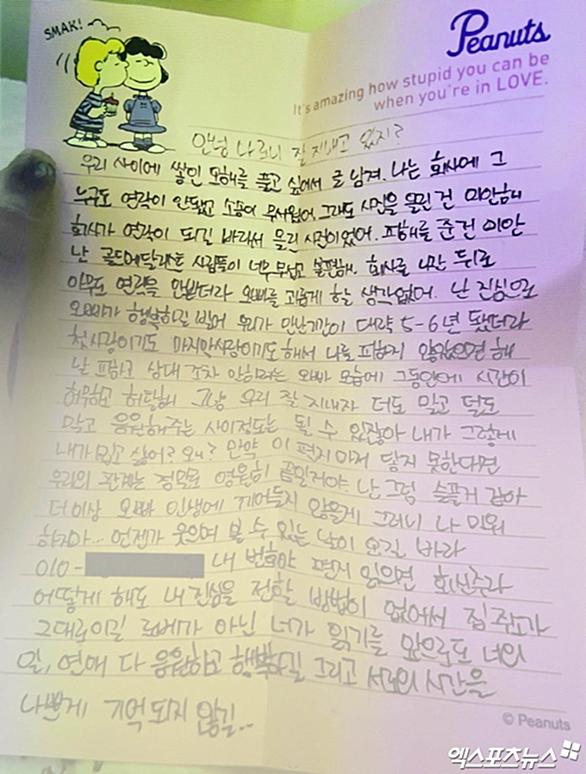 SMAK!
Peanuts
It's amazing how stupid you can be
when you're in LOVE.
안녕 나르니 잘 지내고 있지?
우리 사이에 쌓인 오해를 풀고 싶어서 글 남겨. 나는 회사에 그
누구도 연락이 안됐고 소송이 무서웠어. 그래도 사진을 올린 건 미안해
회사가 연락이 되길 바라서 올린 사진이었어. 피해를 준건 미안
난 골드메달리스트 사람들이 너무 무섭고 불편해. 회사를 나간 뒤로
아무도 연락을 안받더라 오빠를 괴롭게 할 생각없어. 난 진심으로
오빠가 행복하길 빌어 우리가 만난기간이 대략 5-6년 됐더라
첫사랑이기도 마지막사랑이기도 해서 나를 피하지 않았으면 해
난 피하고 상대 조차 안하려는 오빠 모습에 그동안에 시간이
허무하고 허탈해 그냥 우리 잘 지내자 더도 말고 덜도
말고 응원해주는 사이정도는 될 수 있잖아 내가 그렇게
내가 밉고 싫어? 왜? 만약 이 편지마저 닿지 못한다면
우리의 관계는 정말로 영원히 끝일거야. 난 그럼 슬플거 같아
더이상 오빠 인생에 끼어들지 않을게 그러니 나 미워
하지마... 언젠가 웃으며 볼 수 있는 날이 오길 바라
010- 내 번호야 편지 읽으면 회신주라
어떻게 해도 내 진심을 전할 방법이 없어서 집 주소가
그대로이길 로베가 아닌 너가 읽기를 앞으로도 너의
일, 연애 다 응원하고 행복하길 그리고 서로의 시간을
나쁘게 기억되지 않길..
© Peanuts
엑스포츠뉴스